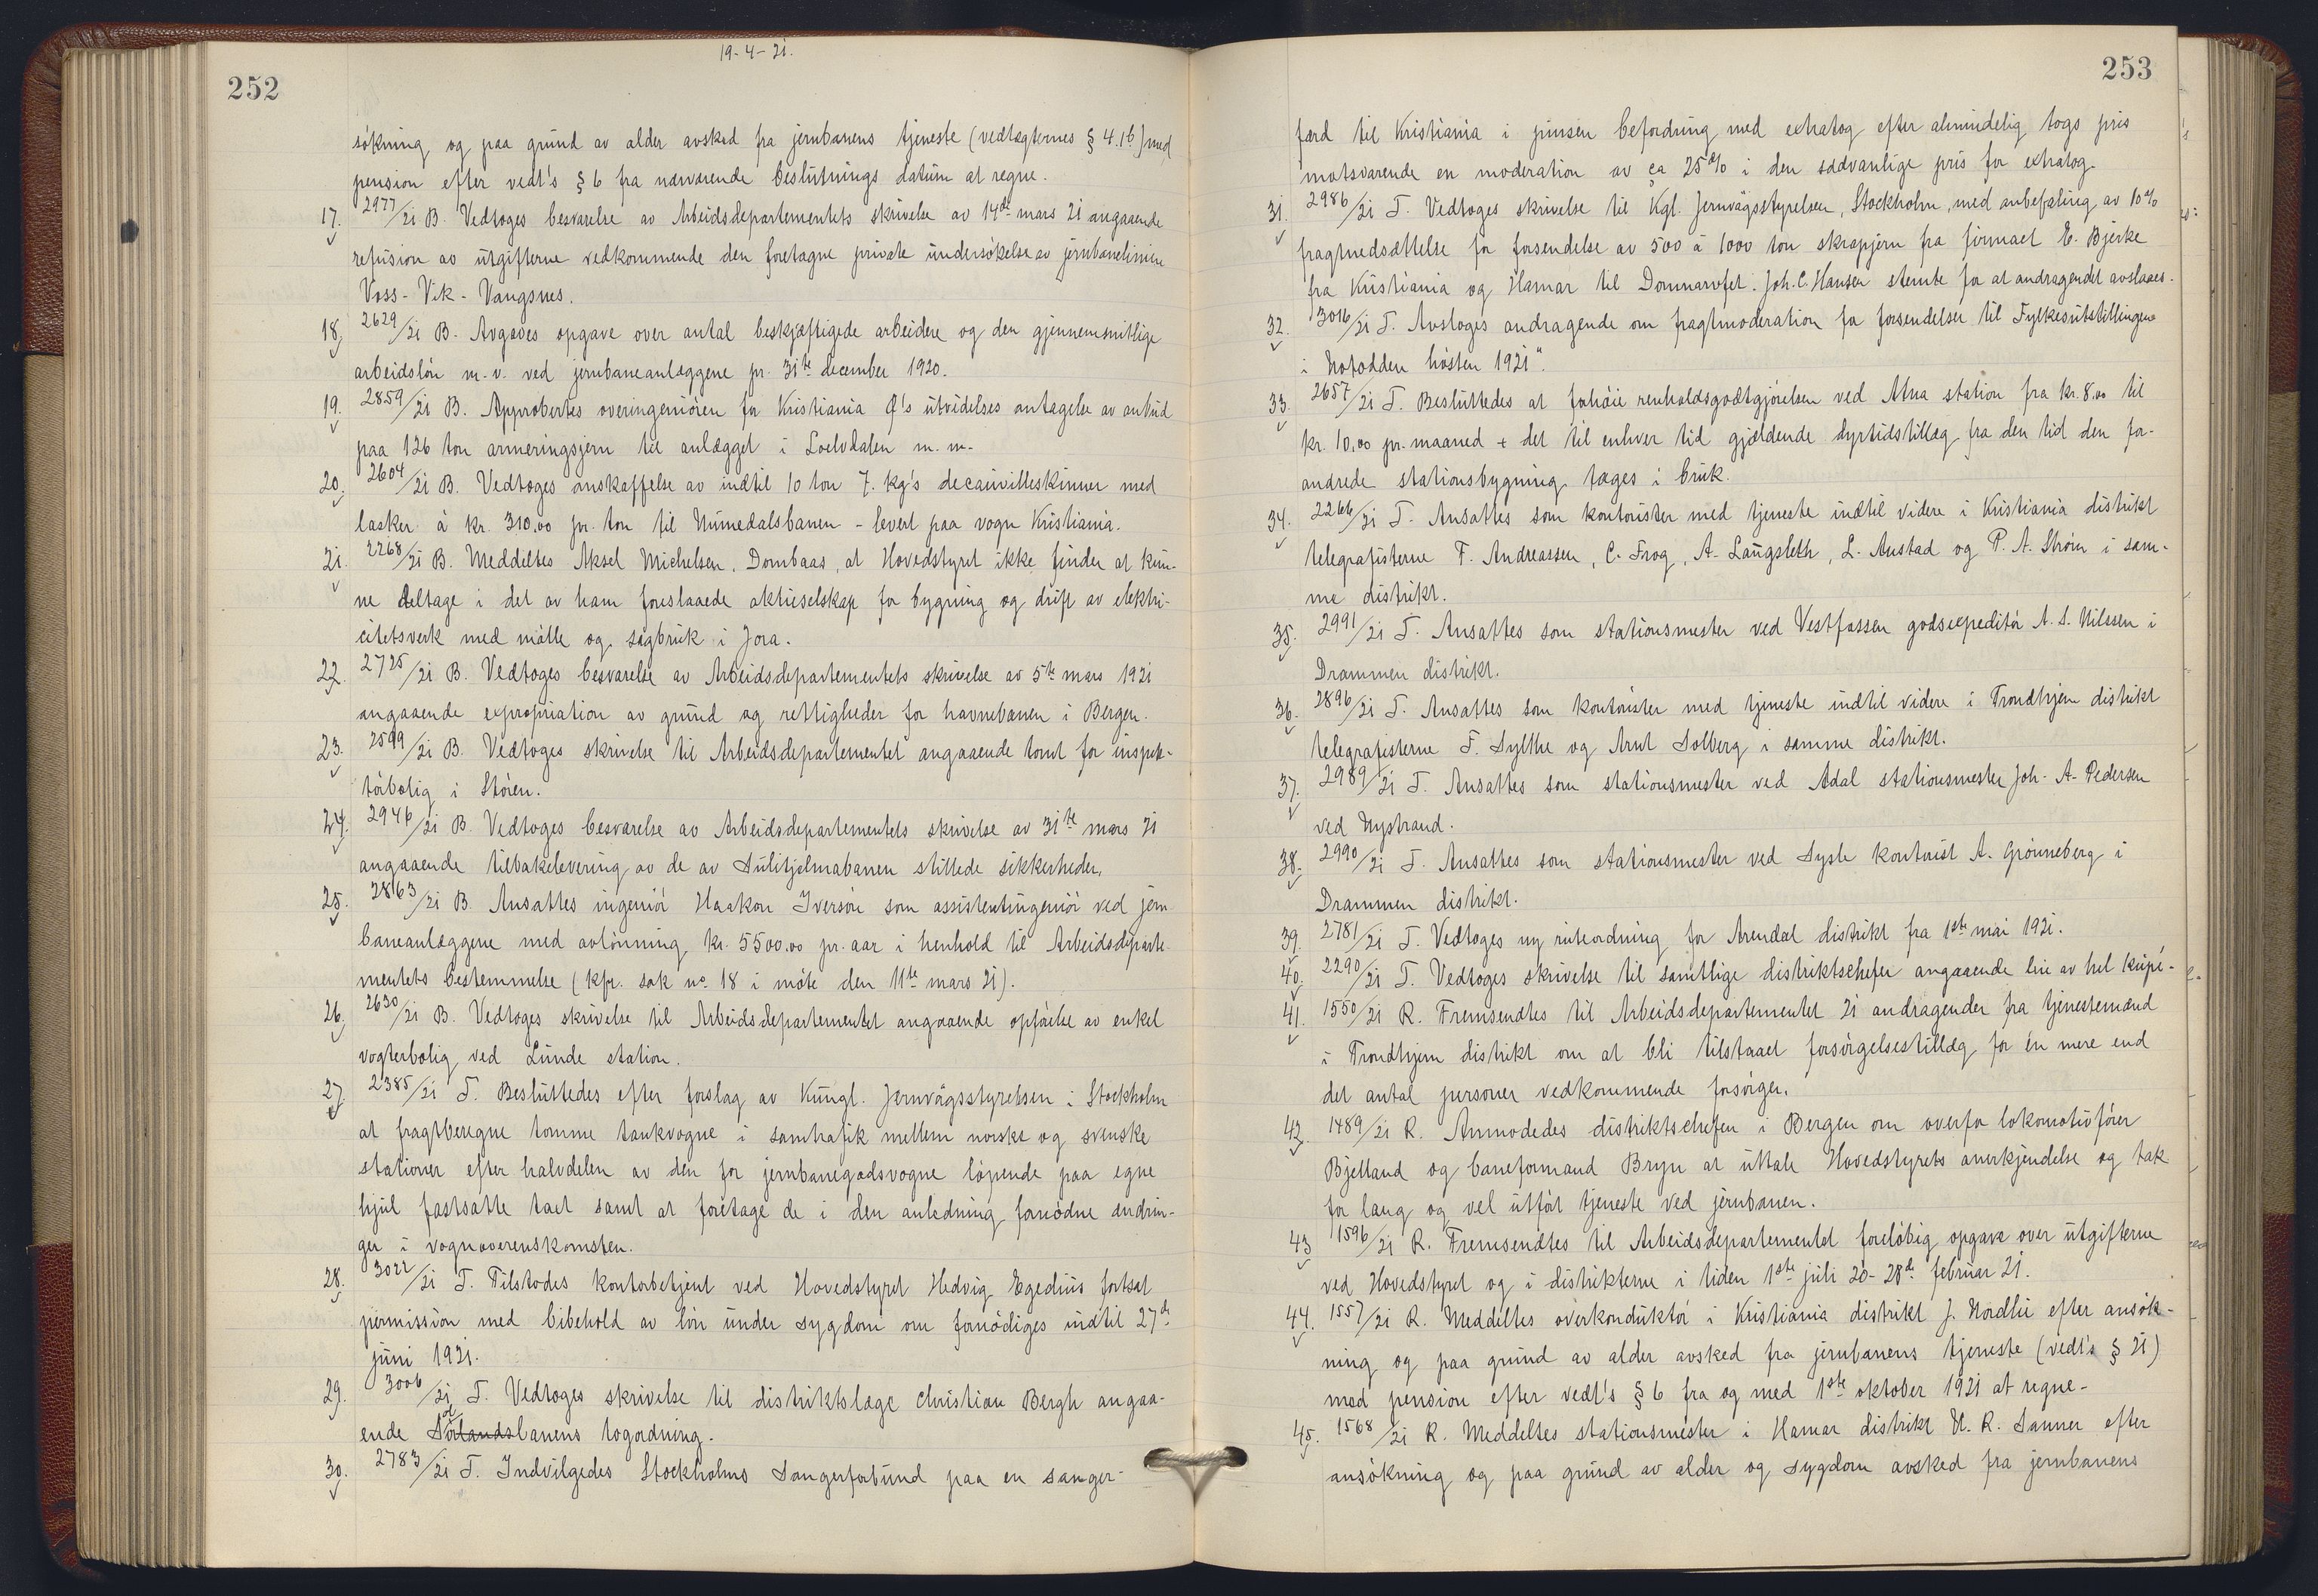 19-4-21.
252
søkning og paa grund av alder avsked fra jernbanens tjeneste (vedtægternes § 4.1b) med
pension efter vedt's § 6 fra nærværende beslutnings datum at regne.
17. 2977/21 B. Vedtoges besvarelse av Arbeidsdepartementets skrivelse av 14de mars 21 angaaende
refusion av utgifterne vedkommende den foretagne private undersøkelse av jernbanelinien
Voss - Vik - Vangsnes.
18. 2629/21 B. Avgaves opgave over antal beskjæftigede arbeidere og den gjennemsnitlige
arbeidsløn m.v. ved jernbaneanlæggene pr. 31te december 1920.
19. 2859/21 B. Approbertes overingeniøren for Kristiania Ø's utvidelses antagelse av anbud
paa 126 ton armeringsjern til anlægget i Loelvdalen m.m.
20. 2604/21 B. Vedtoges anskaffelse av indtil 10 ton 7. kg's decauvilleskinner med
lasker à kr. 310.00 pr. ton til Numedalsbanen - levert paa vogn Kristiania.
21. 2268/21 B. Meddeltes Aksel Michelsen, Dombaas, at Hovedstyret ikke finder at kun-
ne deltage i det av ham foreslaaede aktieselskap for bygning og drift av elektri-
citetsverk med mølle og sagbruk i Jora.
22. 2725/21 B. Vedtoges besvarelse av Arbeidsdepartementets skrivelse av 5te mars 1921
angaaende expropriation av grund og rettigheder for havnebanen i Bergen.
23. 2599/21 B. Vedtoges skrivelse til Arbeidsdepartementet angaaende tomt for inspek-
tørbolig i Støren.
24. 2946/21 B. Vedtoges besvarelse av Arbeidsdepartementets skrivelse av 31te mars 21
angaaende tilbakelevering av de av Sulitjelmabanen stillede sikkerheder.
25. 2863/21 B. Ansattes ingeniør Haakon Iversøn som assistentingeniør ved jern-
baneanlæggene med avlønning kr. 5500.00 pr. aar i henhold til Arbeidsdeparte-
mentets bestemmelse (kfr. sak no. 18 i møte den 11te mars 21).
26. 2630/21 B. Vedtoges skrivelse til Arbeidsdepartementet angaaende opførelse av enkel
vogterbolig ved Lunde station.
27. 2385/21 T. Besluttedes efter forslag av Kungl. Jernvägsstyrelsen i Stockholm
at fragtberegne tomme tankvogne i samtrafik mellem norske og svenske
stationer efter halvdelen av den for jernbanegodsvogne løpende paa egne
hjul fastsatte taxt samt at foretage de i den anledning fornødne ændrin-
ger i vognoverenskomsten.
28. 3022/21 T. Tilstodes kontorbetjent ved Hovedstyret Hedvig Egedius fortsat
permission med bibehold av løn under sygdom om fornødiges indtil 27de
juni 1921.
29. 3006/21 T. Vedtoges skrivelse til distriktslæge Christian Bergh angaa-
ende Sørlandsbanens togordning.
30. 2783/21 T. Indvilgedes Stockholms Sangerforbund paa en sanger-
253
færd til Kristiania i pinsen befordring med extratog efter almindelig togs pris
motsvarende en moderation av ca 25% i den sædvanlige pris for extratog.
31. 2986/21 T. Vedtoges skrivelse til Kgl. Jernvägsstyrelsen, Stockholm, med anbefaling av 10%
fragtnedsættelse for forsendelse av 500 à 1000 ton skrapjern fra firmaet E. Bjerke
fra Kristiania og Hamar til Domnarvfet. Joh. C. Hansen stemte for at andragendet avslaaes.
32. 3016/21 T. Avsloges andragende om fragtmoderation for forsendelser til Fylkesutstillingen
i Notodden høsten 1921".
33. 2657/21 T. Besluttedes at forhøie renholdsgodtgjørelsen ved Atna station fra kr. 8.00 til
kr. 10.00 pr. maaned + det til enhver tid gjældende dyrtidstillæg fra den tid den for-
andrede stationsbygning tages i bruk.
34. 2266/21 T. Ansattes som kontorister med tjeneste indtil videre i Kristiania distrikt
telegrafisterne F. Andreassen, C. Frog, A. Langsleth, L. Austad og P. A. Strøm i sam-
me distrikt.
35. 2991/21 T. Ansattes som stationsmester ved Vestfossen godsexpeditør A. S. Nilssen i
Drammen distrikt.
36. 2896/21 T. Ansattes som kontorister med tjeneste indtil videre i Trondhjem distrikt
telegrafisterne F. Sylthe og Arnt Solberg i samme distrikt.
37. 2989/21 T. Ansattes som stationsmester ved Ådal stationsmester Joh. A. Pedersen
ved Nystrand.
38. 2990/21 T. Ansattes som stationsmester ved Sysle kontorist A. Grønneberg i
Drammen distrikt.
39. 2781/21 T. Vedtoges ny ruteordning for Arendal distrikt fra 1ste mai 1921.
40. 2290/21 T. Vedtoges skrivelse til samtlige distriktschefer angaaende leie av hel kupé.
41. 1550/21 R. Fremsendtes til Arbeidsdepartementet 21 andragender fra tjenestemænd
i Trondhjem distrikt om at bli tilstaaet forsørgelsestillæg for én mere end
det antal personer vedkommende forsørger.
42. 1489/21 R. Anmodedes distriktschefen i Bergen om overfor lokomotivfører
Bjelland og baneformand Bryn at uttale Hovedstyrets anerkjendelse og tak
for lang og vel utført tjeneste ved jernbanen.
43. 1596/21 R. Fremsendtes til Arbeidsdepartementet foreløbig opgave over utgifterne
ved Hovedstyret og i distrikterne i tiden 1ste juli 20 - 28de februar 21.
44. 1557/21 R. Meddeltes overkonduktør i Kristiania distrikt J. Nordlie efter ansøk-
ning og paa grund av alder avsked fra jernbanens tjeneste (vedt's § 21)
med pension efter vedt's § 6 fra og med 1ste oktober 1921 at regne.
45. 1568/21 R. Meddeltes stationsmester i Hamar distrikt H. R. Sanner efter
ansøkning og paa grund av alder og sygdom avsked fra jernbanens